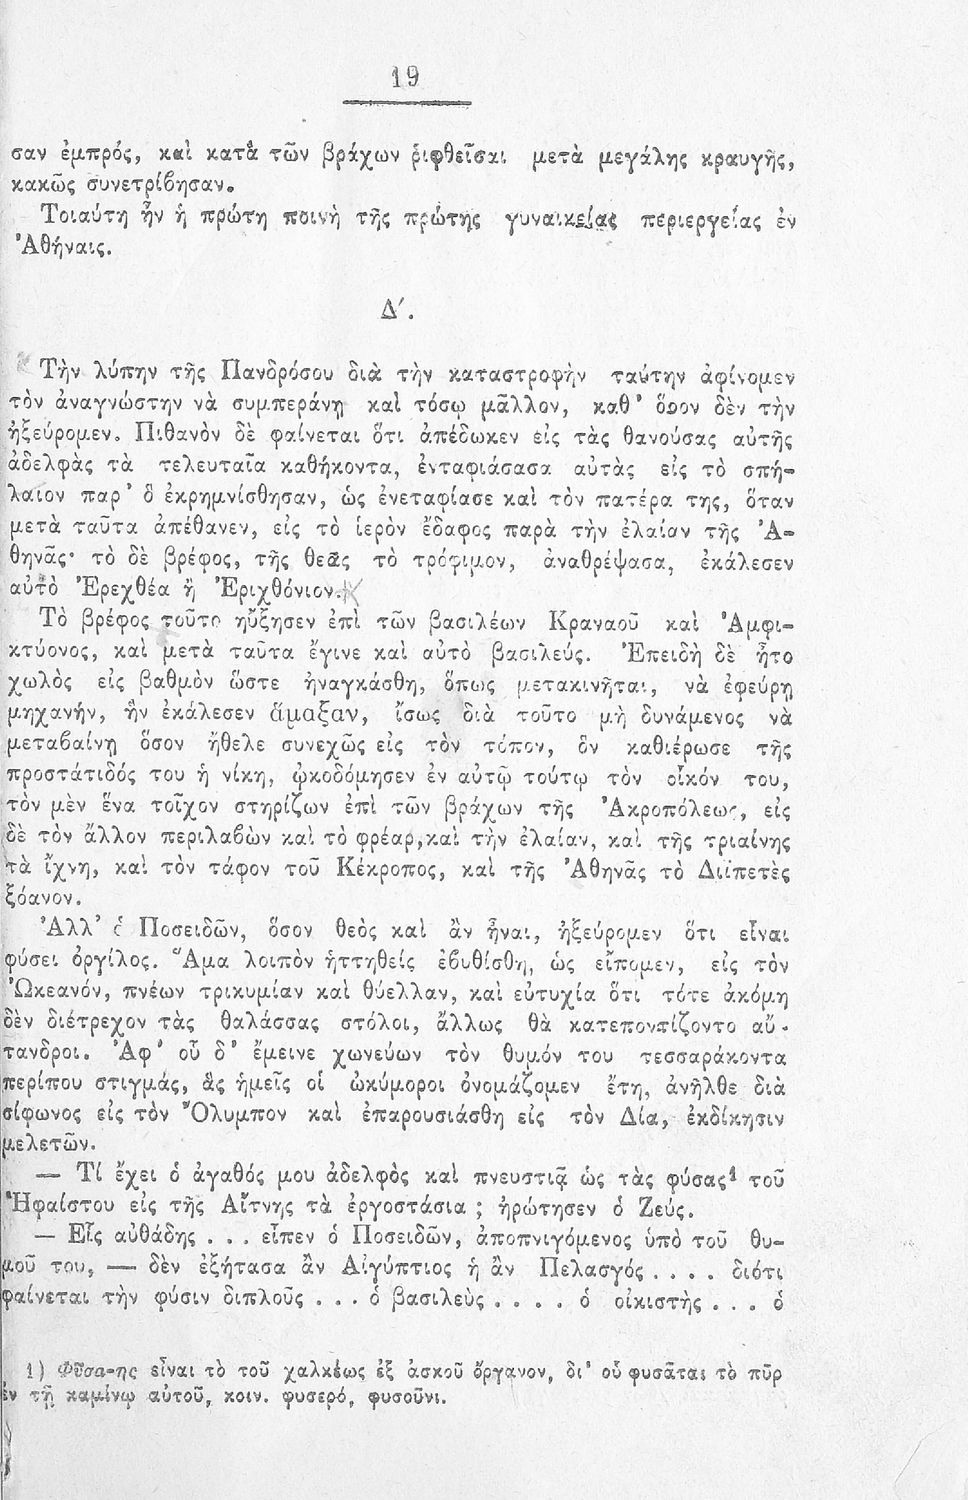 19
σαν ἐμπρός, καὶ κατὰ τῶν βράχων ῥιφθεῖσαι μετὰ μεγάλης κραυγῆς,
κακῶς συνετρίβησαν.
Τοιαύτη ἦν ἡ πρώτη ποινὴ τῆς πρώτης γυναικείας περιεργείας ἐν
Ἀθήναις.
Δʹ.
Τὴν λύπην τῆς Πανδρόσου διὰ τὴν καταστροφὴν ταύτην ἀφίνομεν
τὸν ἀναγνώστην νὰ συμπεράνῃ καὶ τόσῳ μᾶλλον, καθ' ὅσον δὲν τὴν
ἠξεύρομεν. Πιθανὸν δὲ φαίνεται ὅτι ἀπέδωκεν εἰς τὰς θανούσας αὐτῆς
ἀδελφὰς τὰ τελευταῖα καθήκοντα, ἐνταφιάσασα αὐτὰς εἰς τὸ σπή-
λαιον παρ' ὃ ἐκρημνίσθησαν, ὡς ἐνεταφίασε καὶ τὸν πατέρα της, ὅταν
μετὰ ταῦτα ἀπέθανεν, εἰς τὸ ἱερὸν ἔδαφος παρὰ τὴν ἐλαίαν τῆς Ἀ-
θηνᾶς· τὸ δὲ βρέφος, τῆς θεᾶς τὸ τρόφιμον, ἀναθρέψασα, ἐκάλεσεν
αὐτὸ Ἐρεχθέα ἢ Ἐριχθόνιον.
Τὸ βρέφος τοῦτο ηὔξησεν ἐπὶ τῶν βασιλέων Κραναοῦ καὶ Ἀμφι-
κτύονος, καὶ μετὰ ταῦτα ἔγινε καὶ αὐτὸ βασιλεύς. Ἐπειδὴ δὲ ἦτο
χωλὸς εἰς βαθμὸν ὥστε ἠναγκάσθη, ὅπως μετακινῆται, νὰ ἐφεύρῃ
μηχανήν, ἣν ἐκάλεσεν ἅμαξαν, ἴσως διὰ τοῦτο μὴ δυνάμενος νὰ
μεταβαίνῃ ὅσον ἤθελε συνεχῶς εἰς τὸν τόπον, ὃν καθιέρωσε τῆς
προστάτιδός του ἡ νίκη, ᾠκοδόμησεν ἐν αὐτῷ τούτῳ τὸν οἶκόν του,
τὸν μὲν ἕνα τοῖχον στηρίζων ἐπὶ τῶν βράχων τῆς Ἀκροπόλεως, εἰς
δὲ τὸν ἄλλον περιλαβὼν καὶ τὸ φρέαρ,καὶ τὴν ἐλαίαν, καὶ τῆς τριαίνης
τὰ ἴχνη, καὶ τὸν τάφον τοῦ Κέκροπος, καὶ τῆς Ἀθηνᾶς τὸ Διϊπετὲς
ξόανον.
Ἀλλ' ὁ Ποσειδῶν, ὅσον θεὸς καὶ ἂν ἦναι, ἠξεύρομεν ὅτι εἶναι
φύσει ὀργίλος. Ἅμα λοιπὸν ἡττηθεὶς ἐβυθίσθη, ὡς εἴπομεν, εἰς τὸν
Ὠκεανόν, πνέων τρικυμίαν καὶ θύελλαν, καὶ εὐτυχία ὅτι τότε ἀκόμη
δὲν διέτρεχον τὰς θαλάσσας στόλοι, ἄλλως θὰ κατεποντίζοντο αὔ-
τανδροι. Ἀφ' οὗ δ' ἔμεινε χωνεύων τὸν θυμόν του τεσσαράκοντα
περίπου στιγμάς, ἃς ἡμεῖς οἱ ὠκύμοροι ὀνομάζομεν ἔτη, ἀνῆλθε διὰ
σίφωνος εἰς τὸν Ὄλυμπον καὶ ἐπαρουσιάσθη εἰς τὸν Δία, ἐκδίκησιν
μελετῶν.
— Τί ἔχει ὁ ἀγαθός μου ἀδελφὸς καὶ πνευστιᾷ ὡς τὰς φύσας¹ τοῦ
Ἡφαίστου εἰς τῆς Αἴτνης τὰ ἐργοστάσια ; ἠρώτησεν ὁ Ζεύς.
— Εἷς αὐθάδης . . . εἶπεν ὁ Ποσειδῶν, ἀποπνιγόμενος ὑπὸ τοῦ θυ-
μοῦ του, — δὲν ἐξήτασα ἂν Αἰγύπτιος ἢ ἂν Πελασγός . . . . διότι
φαίνεται τὴν φύσιν διπλοῦς . . . ὁ βασιλεὺς . . . . ὁ οἰκιστὴς . . . ὁ
1) Φῦσα-ης εἶναι τὸ τοῦ χαλκέως ἐξ ἀσκοῦ ὄργανον, δι' οὗ φυσᾶται τὸ πῦρ
ἐν τῇ καμίνῳ αὐτοῦ, κοιν. φυσερό, φυσοῦνι.